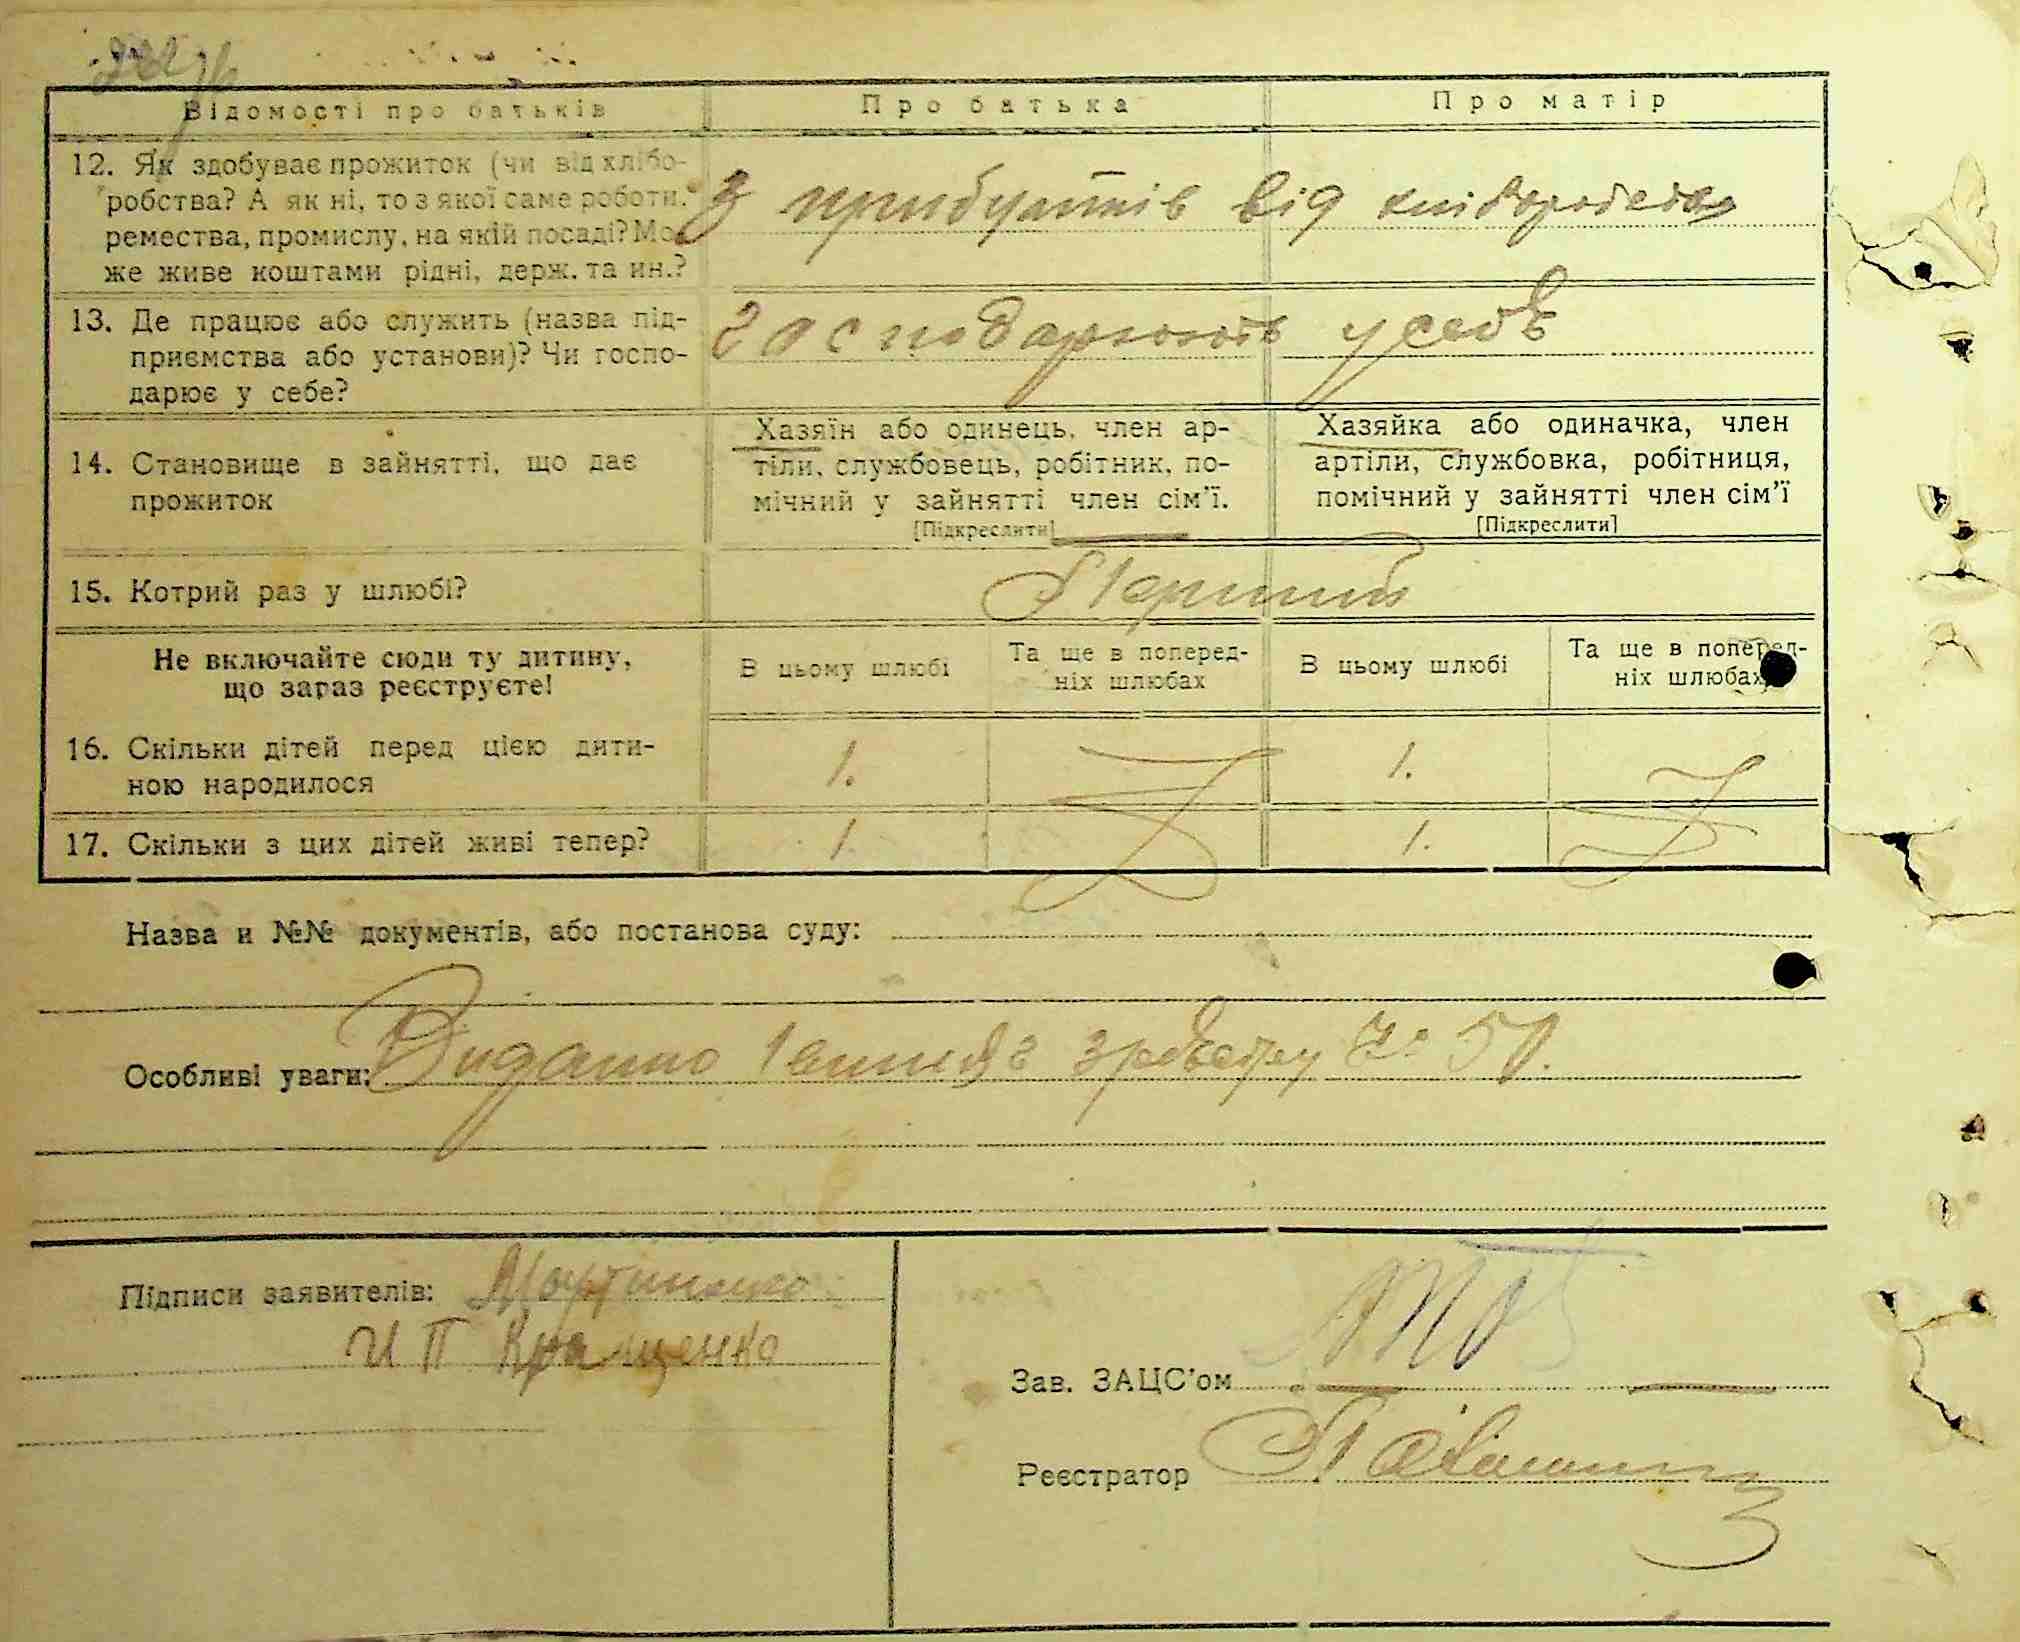 Відомості про батьків Про батька Про матір
12. Як здобуває прожиток (чи від хлібо-
робства? А як ні, то з якої саме роботи,
ремества, промислу, на якій посаді? Мо-
же живе коштами рідні, держ. та ин.?
З прибутків від хліборобства
13. Де працює або служить (назва під-
приємства або установи)? Чи госпо-
дарює у себе?
господарюють у себе
14. Становище в зайнятті, що дає
прожиток
Хазяїн або одинець, член ар-
тіли, службовець, робітник, по-
мічний у зайнятті член сім'ї.
[Підкреслити]
Хазяйка або одиначка, член
артіли, службовка, робітниця,
помічний у зайнятті член сім'ї
[Підкреслити]
15. Котрий раз у шлюбі? Перший
Не включайте сюди ту дитину,
що зараз реєструєте!
В цьому шлюбі
Та ще в поперед-
ніх шлюбах
В цьому шлюбі
Та ще в поперед-
ніх шлюбах
16. Скільки дітей перед цією дити-
ною народилося
1. 1.
17. Скільки з цих дітей живі тепер? 1. 1.
Назва и №№ документів, або постанова суду:
Особливі уваги: Виданно 50.
Підписи заявителів: Мартиненко
И П Кращенко
Зав. ЗАЦС'ом
Реєстратор